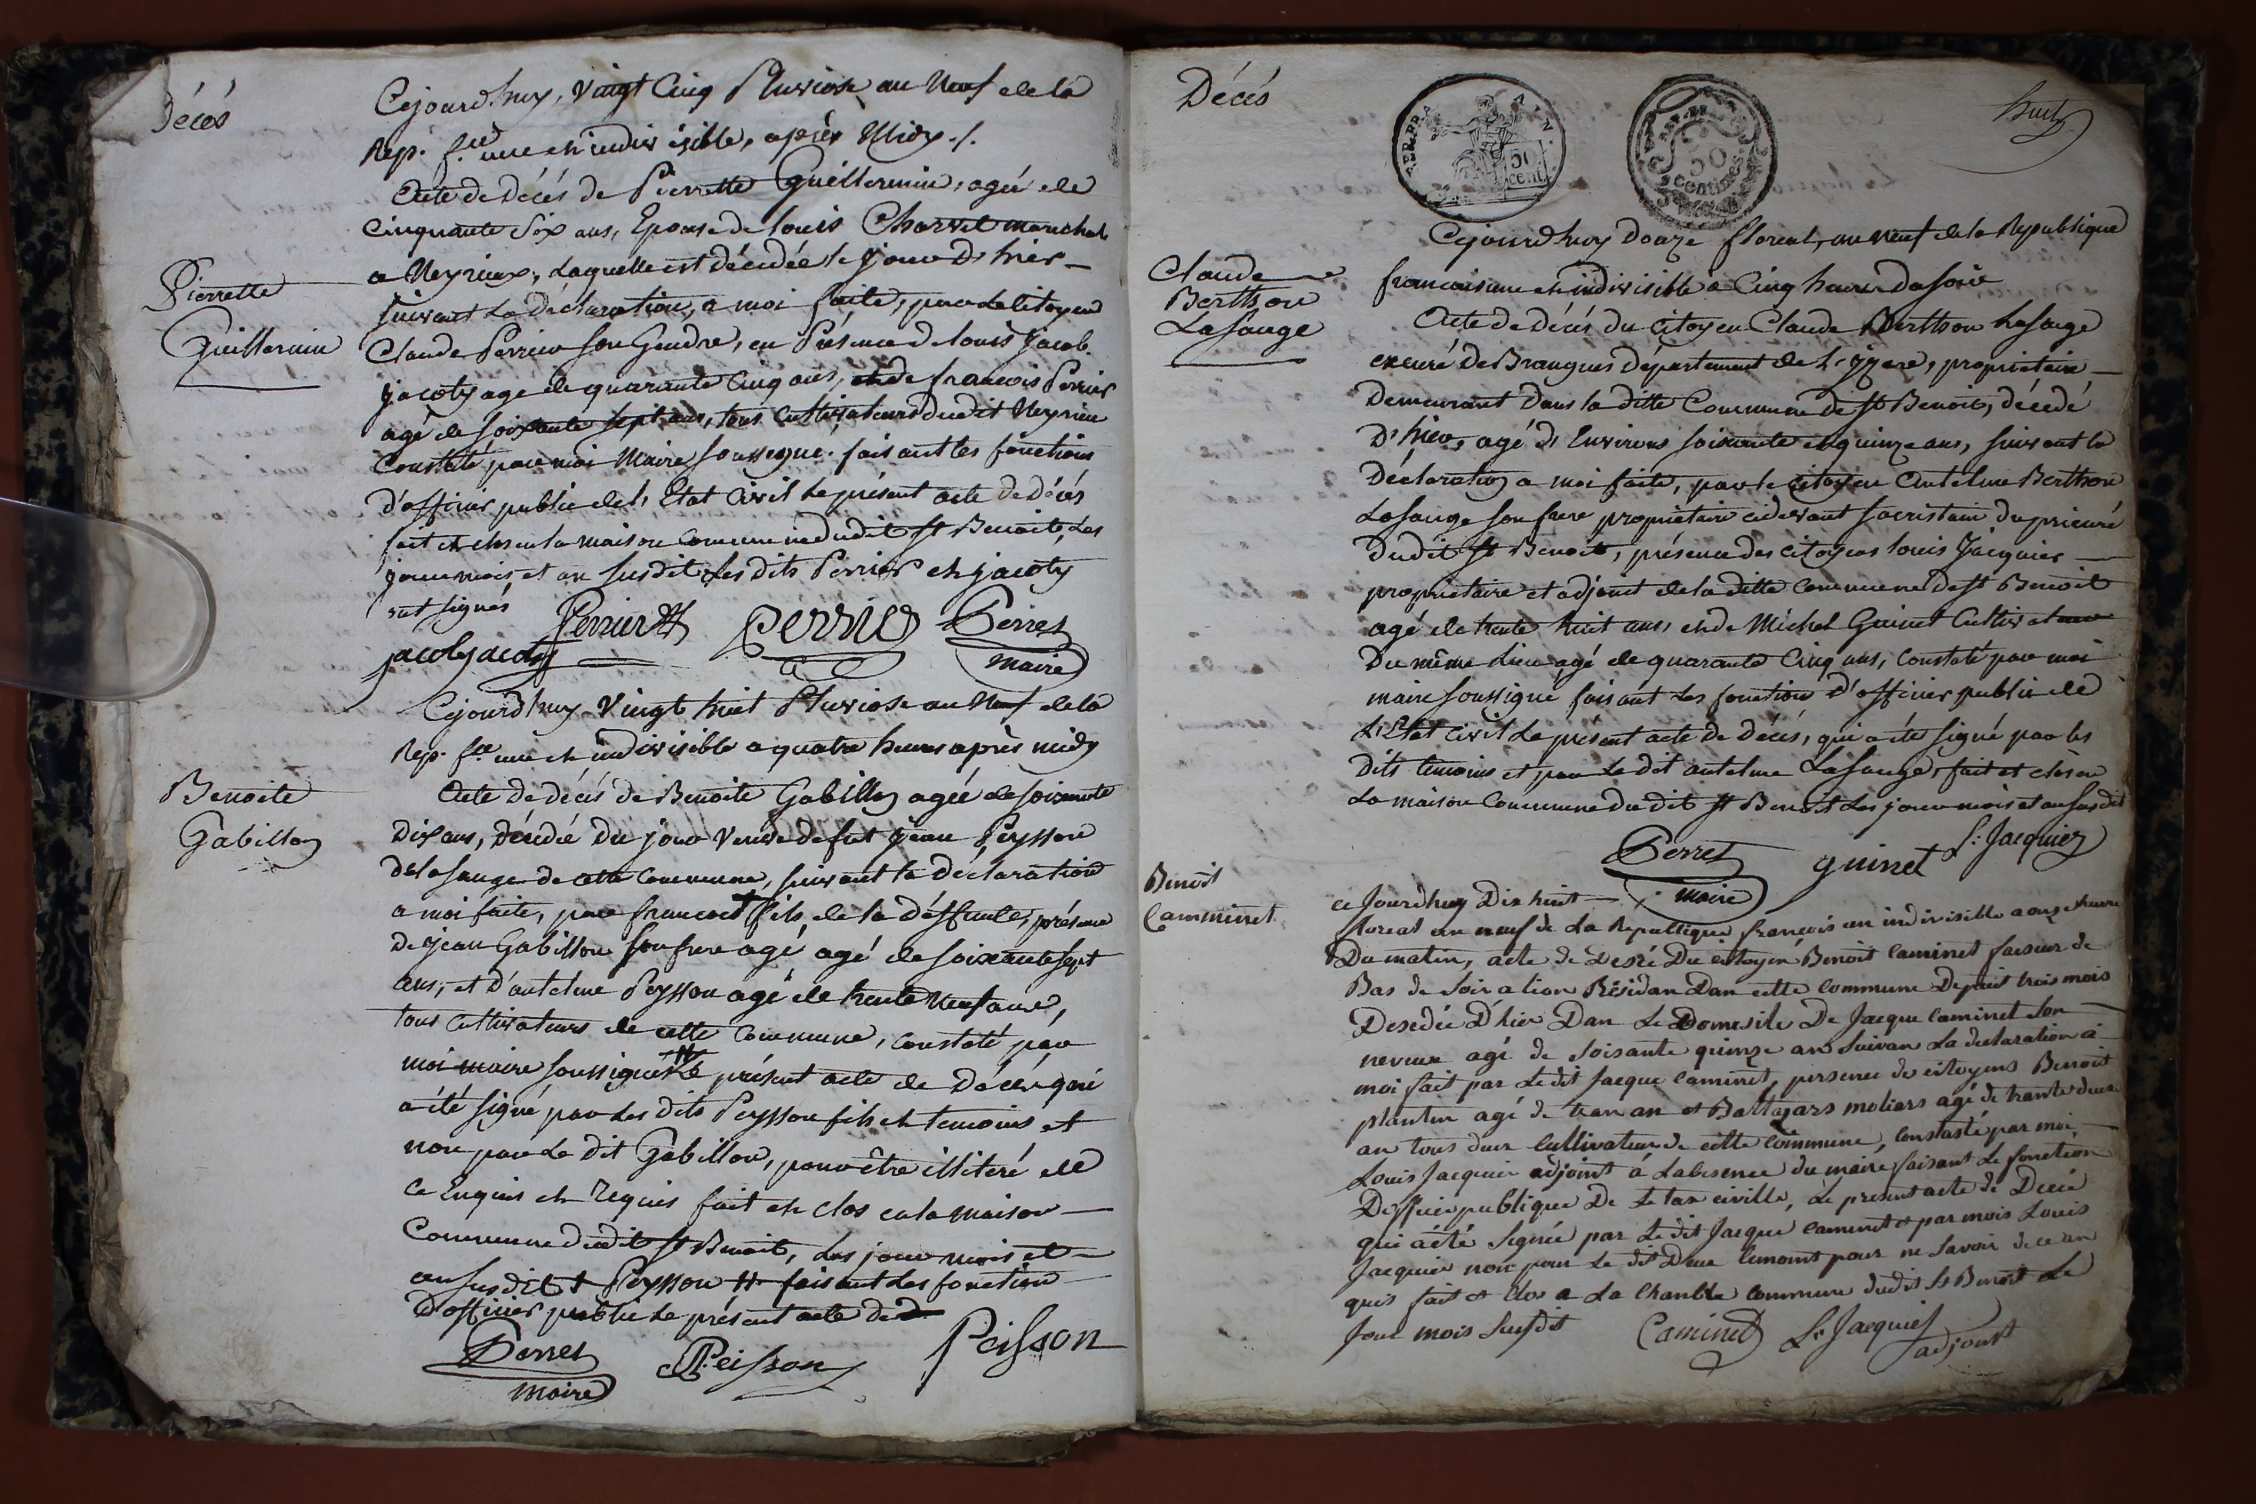 Décés
Cejourd'huy, vingt Cinq Pluviose an Neuf de la
Rep. f.ce une et indivisible, après Midy ./.
Acte de Décés de Pierrette Guillermin, agée de
Cinquante Six ans, Epouse de louis Charvet marechal
a Meyrieux, laquelle est décédée le jour d'hier
Pierrette
Guillermin
suivant La déclaration, a moi faite, par le Citoyen
Claude Perrier son Gendre, en Présence de louis Jacob
jacoty agé de quarante Cinq ans, et de francois Perrier
agé de soixante sept ans, tous Cultivateurs dudit Meyrieu
Constaté, par moi Maire soussigné. faisant les fonctions
d'officier public de l'Etat Civil Le présent acte de Décés
fait et clos en la maison Commune dudit St Benoit, Les
jour mois et an susdit Les dits Perrier et jacoty
ont signés
Perrier
Perrier
Perret
maire
jacob jacoty
Cejourd'huy Vingt huit Pluviose an Neuf de la
Rep. f.ce une et indivisible a quatre heures après midy
Benoite
Gabillon
Acte de décés de Benoite Gabillon agée de soixante
Dix ans, Décédée Du jour Veuve de fut Jean Peysson
de la sauge de cette Commune, suivant la Déclaration
a moi faite, par francois + fils de la déffunte, présence
de jean Gabillon son frere agé agé de soixante sept
ans, et d'antelme Peysson agé de trente Neuf ans,
tous Cultivateurs de cette Commune, Constaté par
moi maire soussigné # Le présent acte de Décés qui
a été signé par Les dits Peysson fils et temoins et
non par Le dit Gabillon, pour être illiteré de
Ce Enquis et Requis fait et clos en la maison
Commune dudit St Benoit, Les jour mois et
an susdit + Peysson # faisant Les fonction
D'officier public Le présent acte de d
Perret
maire
Peisson
Peisson
Décés
huit
50
cent.
REP. FRA.
50
centimes
Cejourd'huy Douze floreal, an neuf de la Republique
francaise une et indivisible a Cinq heures du soir
Claude
Berthon
Lasauge
Acte de Décés du Citoyen Claude Berthon Lasauge
excuré de Brangues Département de L'Izere, propriétaire
Demeurant Dans la ditte Commune de St Benoit, décédé
D'hier, agé d'Environs soixante et quinze ans, suivant la
Déclaration a moi faite, par le citoyen Antelme Berthon
Lasauge son frere propriétaire cidevant sacristain du prieuré
Dudit St Benoit, présence des citoyens louis Jacquier
propriétaire et adjoint de la ditte Commune de St Benoit
agé de trente huit ans, et de Michel Guinet Cultivateur
Du même Lieu agé de quarante Cinq ans, Constaté par moi
maire soussigné faisant Les fonction d'officier public de
L'Etat Civil Le présent acte de Décés, qui a été signé par les
dits temoins et par Le dit antelme Lasauge, fait et clos en
La maison Commune du dit St Benoit Les jour mois et an susdit
Perret
maire
guinet
L. Jacquier
Benoit
Camminet
ce Jourdhuy Dix huit
floreal an neuf de La Republique françois un indivisible a onze heure
Du matin, acte de Desé Du citoyen Benoit Caminet faiseur de
Bas de Résidan Dan cette Commune Depuis trois mois
Desedée D'hier Dan Le Domesile De Jacque Caminet son
neveux agé de Soisante quinze an Suivan La declaration á
moi fait par Ledit Jacque Caminet, persence de citoyens Benoit
plantin agé de tran an et Baltazars moliars agé de trante deux
an tous deux Cultivateur de cette Commune, Constasté par moi
Louis Jacquier adjoint á Labesence du maire faisant Le fonction
Dofficier publique De Letax civille, Le present acte de Decié
qui áété Signée par Le dit Jacque Caminet et par mois Louis
Jacquier non pour Le dit Deux temoins pour ne Savoir de ce an
quis fait et Clos a La Chanbre Commune dudit St Benoit Le
Jour mois Susdit
Caminet
Ls Jacquier
adjoint